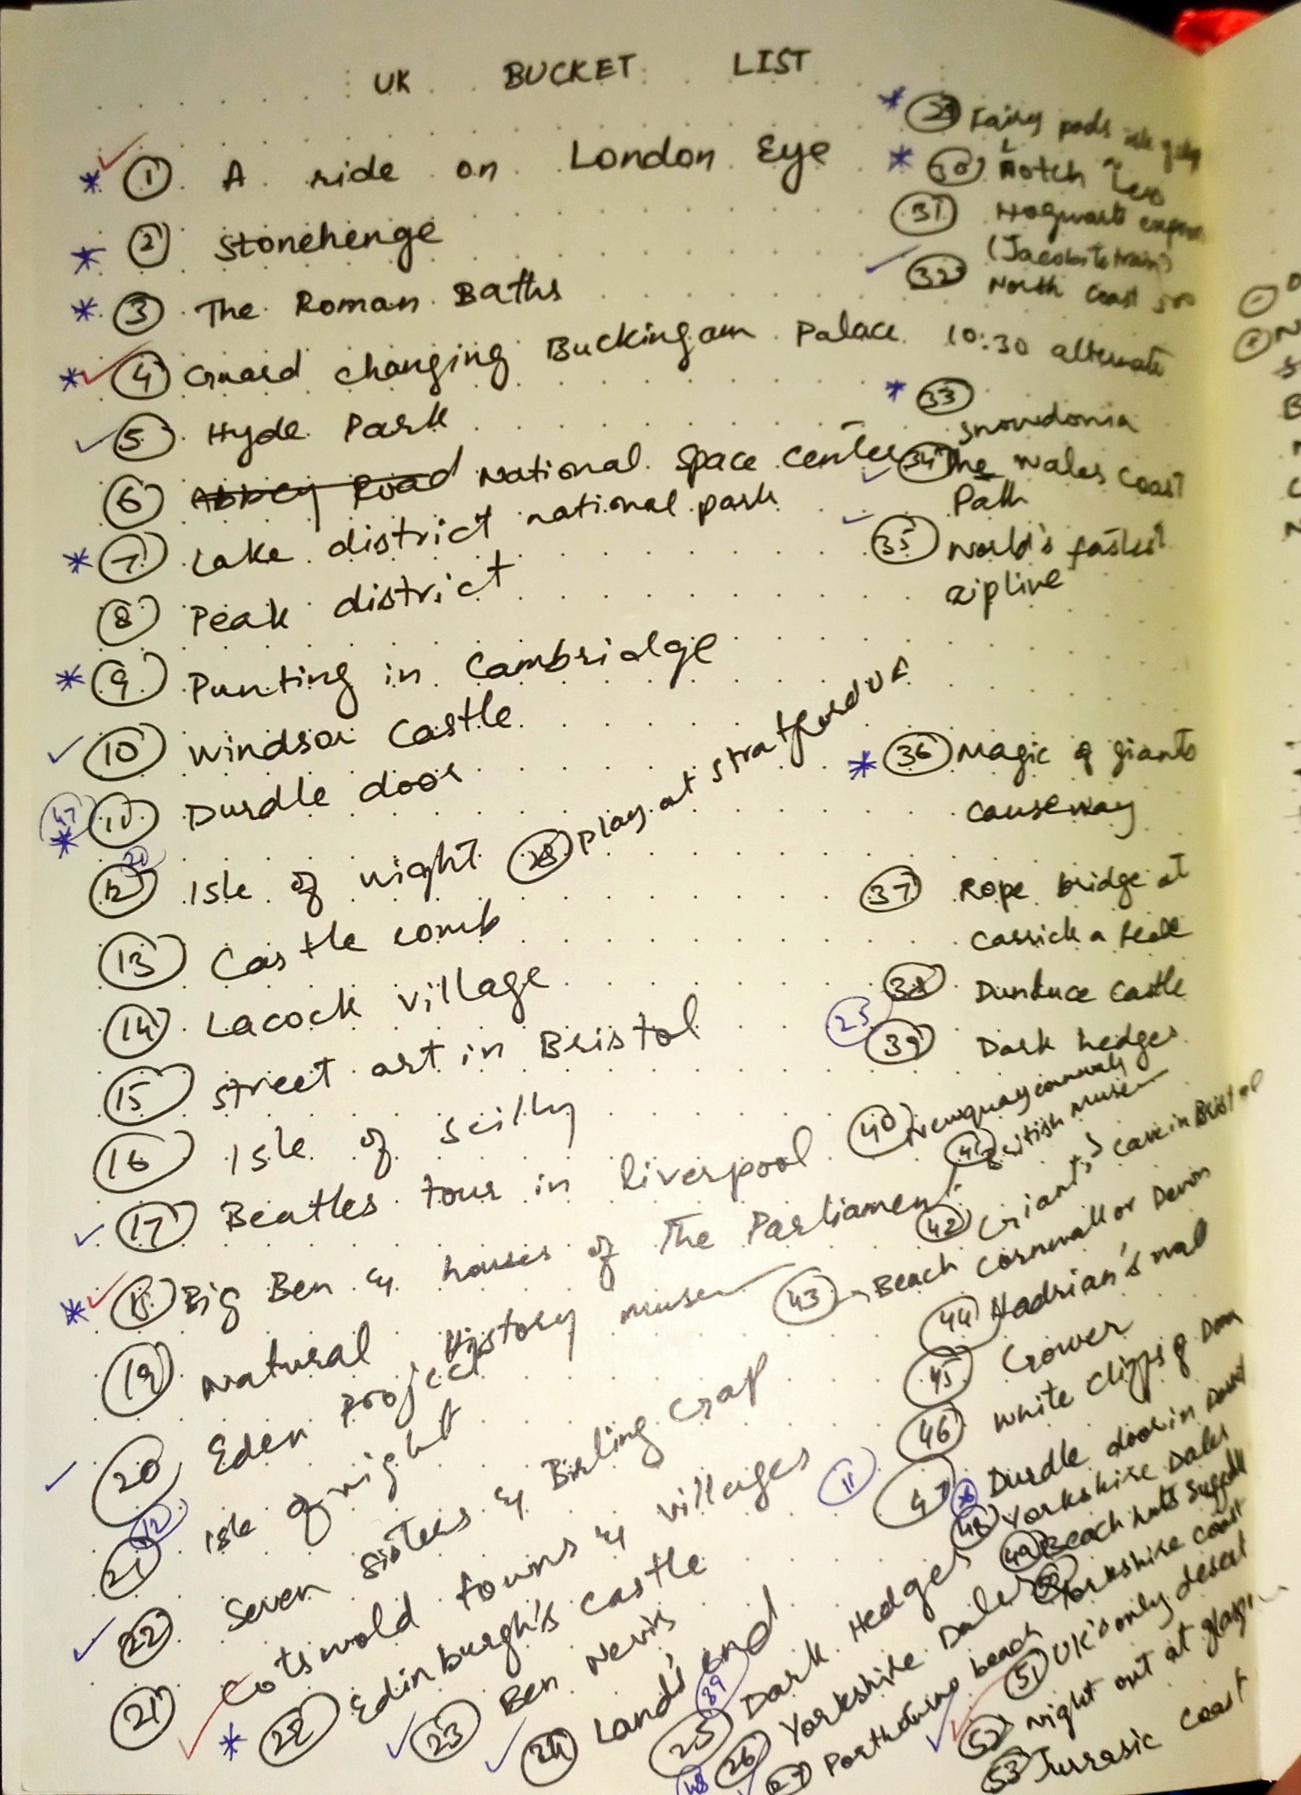 UK BUCKET LIST
1 A ride on London Eye
2 Stonehenge
3 The Roman Baths
4 Guard changing Buckingam Palace 10:30 alternate
5 Hyde Park
6 Abbey Road National Space center
7 Lake district national park
8 Peak district
9 Punting in Cambridge
10 Windsor Castle
47
11 Durdle door
21
12 Isle of wight
28 play at stratford
13 Castle comb
14 Lacock village
15 street art in Bristol
16 Isle of scilly
17 Beatles tour in liverpool
18 Big Ben & houses of The Parliament
19 Natural History museum
20 Eden Project
12
21 Isle of wight
22 Seven sisters & Birling Gap
21 Cotswold towns & villages
22 Edinburgh's castle
23 Ben Nevis
24 Land's end
39
25 Dark Hedges
48
26 Yorkshire Dales
27 Porthcurno beach
29 Fairy pools isle
30 Lotch Ness
31 Hogwarts express
(Jacobite train)
32 North Coast 500
33
snowdonia
34 The Wales Coast
Path
35 World's fastest
zipline
36 Magic of giants
causeway
37 Rope bridge at
Carrick a Rede
38 Dunluce Castle
25
39 Dark hedges
40 Newquay cornwall
41 British museum
42 Giant's cave in Bristol
43 Beach Cornwall or Devon
44 Hadrian's wal
45 Gower
46 White cliffs of Dover
11
47 Durdle door in Dorset
48 Yorkshire Dales
49 Beach huts suffolk
50 Yorkshire coast
51 UK's only desert
52 Night out at glasgow
53 Jurrasic Coast